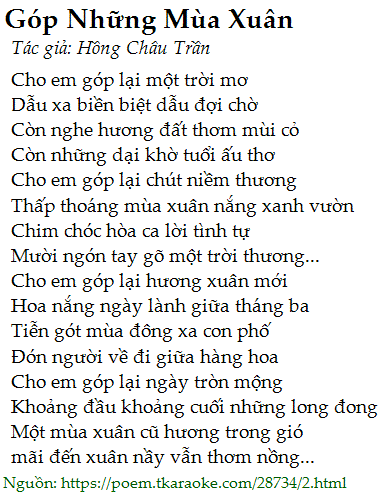 Góp Những Mùa Xuân
Tác giả: Hồng Châu Trần
Cho em góp lại một trời mơ
Dẫu xa biền biệt dẫu đợi chờ
Còn nghe hương đất thơm mùi cỏ
Còn những dại khờ tuổi ấu thơ
Cho em góp lại chút niềm thương
Thấp thoáng mùa xuân nắng xanh vườn
Chim chóc hòa ca lời tình tự
Mười ngón tay gõ một trời thương...
Cho em góp lại hương xuân mới
Hoa nắng ngày lành giữa tháng ba
Tiễn gót mùa đông xa con phố
Đón người về đi giữa hàng hoa
Cho em góp lại ngày tròn mộng
Khoảng đầu khoảng cuối những long đong
Một mùa xuân cũ hương trong gió
mãi đến xuân nầy vẫn thơm nồng...
Nguồn: https://poem.tkaraoke.com/28734/2.html